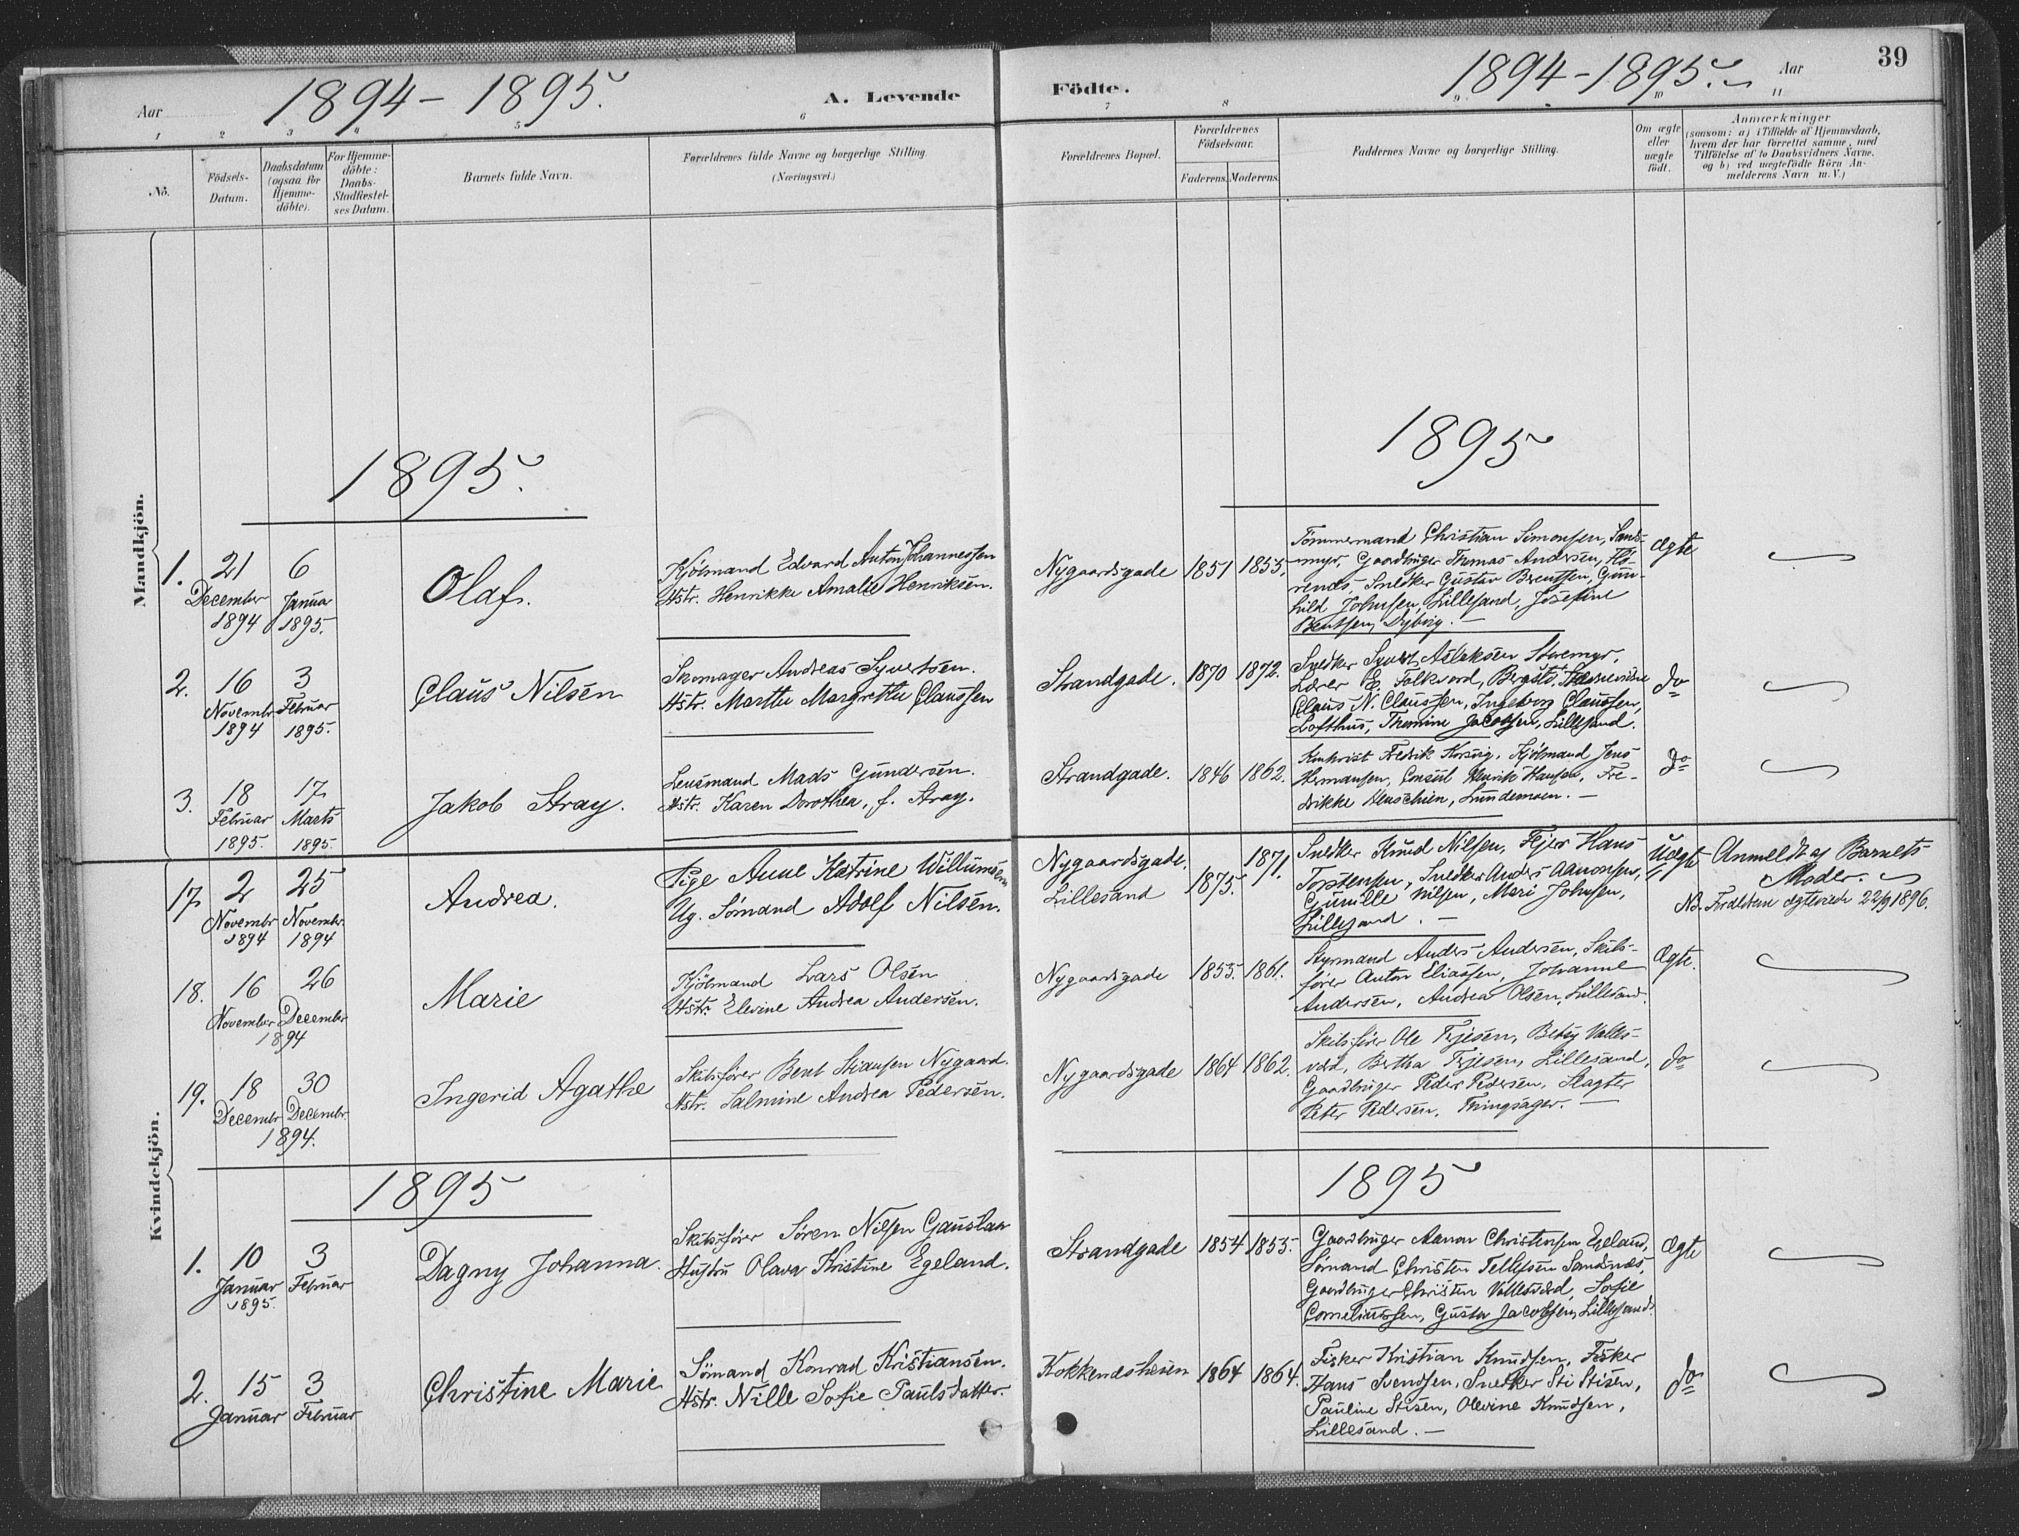 Aar 1894 - 1895.
A. Levende
Födte.
1894 - 1895. Aar
39
1 2 3 4 5 6 7 8 9 10 11
No.
Födsels-
Datum.
Daabsdatum
(ogsaa for
Hjemme-
döbte).
For Hjemme-
döbte:
Daabs-
Stadfæstel-
ses Datum.
Barnets fulde Navn.
Forældrenes fulde Navne og borgerlige Stilling.
(Næringsvei.)
Forældrenes Bopæl.
Forældrenes
Födselsaar.
Faderens. Moderens.
Faddernes Navne og borgerlige Stilling.
Om ægte
eller
uægte
födt.
Anmærkninger
(saasom: a) i Tilfælde af Hjemmedaab,
hvem der har forrettet samme, med
Tilföielse af to Daabsvidners Navne.
og b) ved uægtefödte Börn An-
melderens Navn m. V.)
Mandkjön.
1895.
1895
1.
21
December
1894
6
Januar
1895.
Olaf.
Kjölmand Edvard Anton Johannessen
Hstr. Henrikke Amalie Henriksen.
Nygaardsgade
1851
1855.
Tömmermand Christian Simonsen, Sand-
myr, Gaardbruger Thomas Andersen,
Snedker Gustav Berntsen, Gun-
hild Johnsen, Lillesand, Josefine
Berntsen, Dybvig. —
Ægte
2.
16
Novembr
1894
3
Februar
1895.
Claus Nilsen
Skomager Andreas Syvertsen.
Hstr. Marthe Margrethe Claussen
Strandgade.
1870
1872.
Snedker Syvert Aslaksen Storemyr,
Lærer E. Folkvord,
Claus N. Claussen, Ingeborg Claussen,
Lofthus, Themine Jacobsen, Lillesand.
do
3.
18
Februar
1895.
17
Marts
1895.
Jakob Stray.
Lensmand Mads Gundersen.
Hstr. Karen Dorothea, f. Stray.
Strandgade.
1846
1862.
Fredrik Kjölmand Jens
Hermansen, Consul Henrik Hansen, Fre-
drikke Henschien, Lundemoen. —
do
Kvindekjön.
17
2
Novembr
1894
25
Novembr.
1894
Andrea.
Pige Anne Katrine Willumsen
Ug. Sömand Adolf Nilsen.
Nygaardsgade.
Lillesand
1873.
1871.
Snedker Knud Nilsen, Hans
Torstensen, Snedker Anders Aanonsen,
Gunille Nilsen, Mari Johnsen,
Lillesand. —
Uægte
Anmeldt af Barnets
Moder.
NB. Forældrene ægteviede 22/9 1896.
18.
16
November
26
December
1894
Marie
Kjölmand Lars Olsen
Hstr. Elevine Andrea Andersen.
Nygaardsgade
1855.
1861.
Styrmand Anders Andersen, Skibs-
förer Anton Eliassen, Johanne
Andersen, Andrea Olsen, Lillesand.
Ægte.
19.
18
Decembr
30
Decembr
1894.
Ingerid Agathe
Skibsförer Bent Nygaard.
Hstr. Salmine Andrea Pedersen.
Nygaardsgade
1864
1862.
Skibsförer Ole Terjesen, Betzy Valles-
værd, Bertha Terjesen, Lillesand,
Gaardbruger Peder Pedersen, Slagter
Peter Pedersen, Tingsager. —
do
1895
1895
1.
10
Januar
1895.
3
Februar
Dagny Johanna.
Skibsförer Sören Nilsen Gaustaa
Hustru Olava Kristine Egeland.
Strandgade
1854
1855.
Gaardbruger Aanon Christensen Egeland,
Sömand Christen Tellefsen Sandnæs,
Gaardbruger Christen Vallesværd, Sofie
Corneliussen, Gusta Jacobsen, Lillesand.
Ægte
2.
15
Januar
3
Februar
Christine Marie
Sömand Konrad Kristiansen.
Hstr. Nille Sofie Paulsdatter.
Kokkenesheien
1864
1864.
Fisker Kristian Knudsen, Fisker
Hans Svendsen, Snedker Sti Stisen,
Pauline Stisen, Olevine Knudsen,
Lillesand. —
do